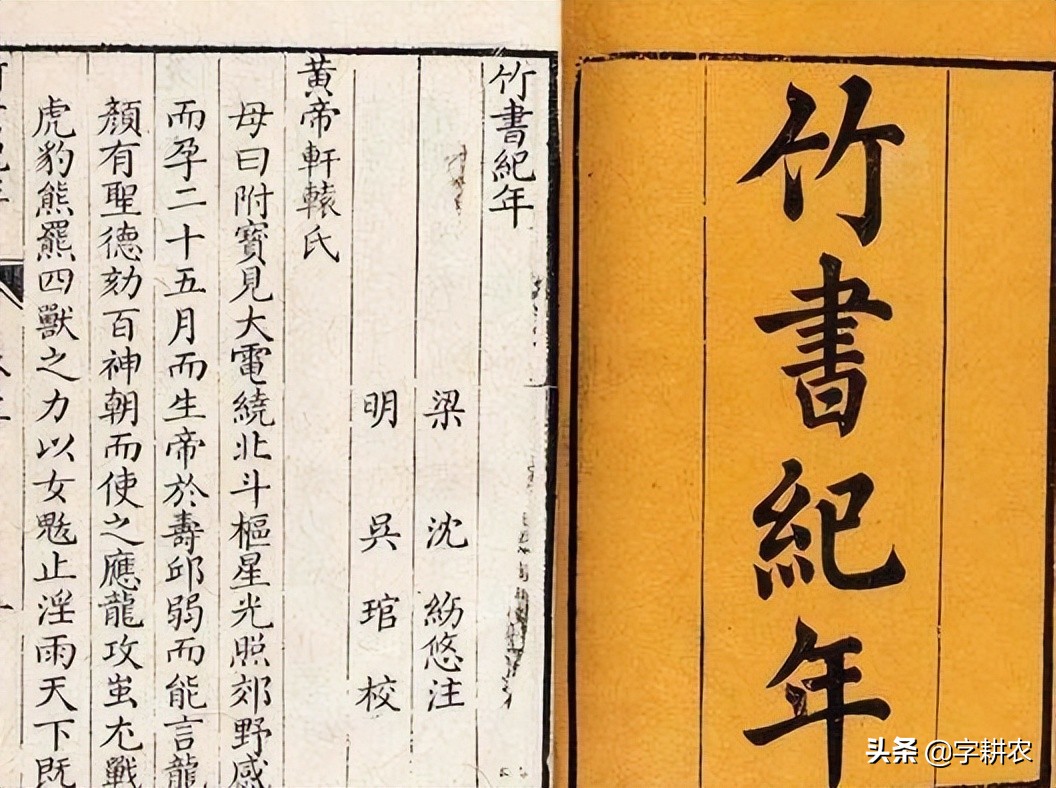 竹書紀年
竹書紀年
梁 沈 約悠注
明 吳 琯 校
黃帝軒轅氏
母曰附寶見大電繞北斗樞星光照郊野感
而孕二十五月而生帝於壽邱弱而能言龍
顏有聖德劾百神朝而使之應龍攻蚩尤戰
虎豹熊羆四獸之力以女魃止淫雨天下既
头条 @字耕农